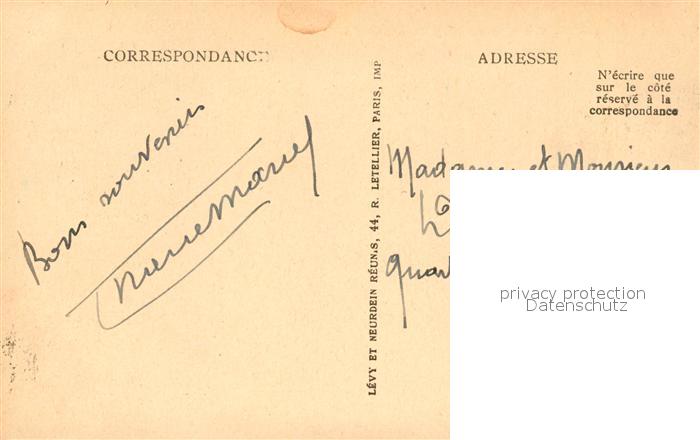 CORRESPONDANCE
Bons souvenirs
ADRESSE
N'écrire que
sur le côté
réservé à la
correspondance
LÉVY ET NEURDEIN RÉUNIS, 44, R. LETELLIER, PARIS, IMP
Madame et Monsieur
privacy protection
Datenschutz